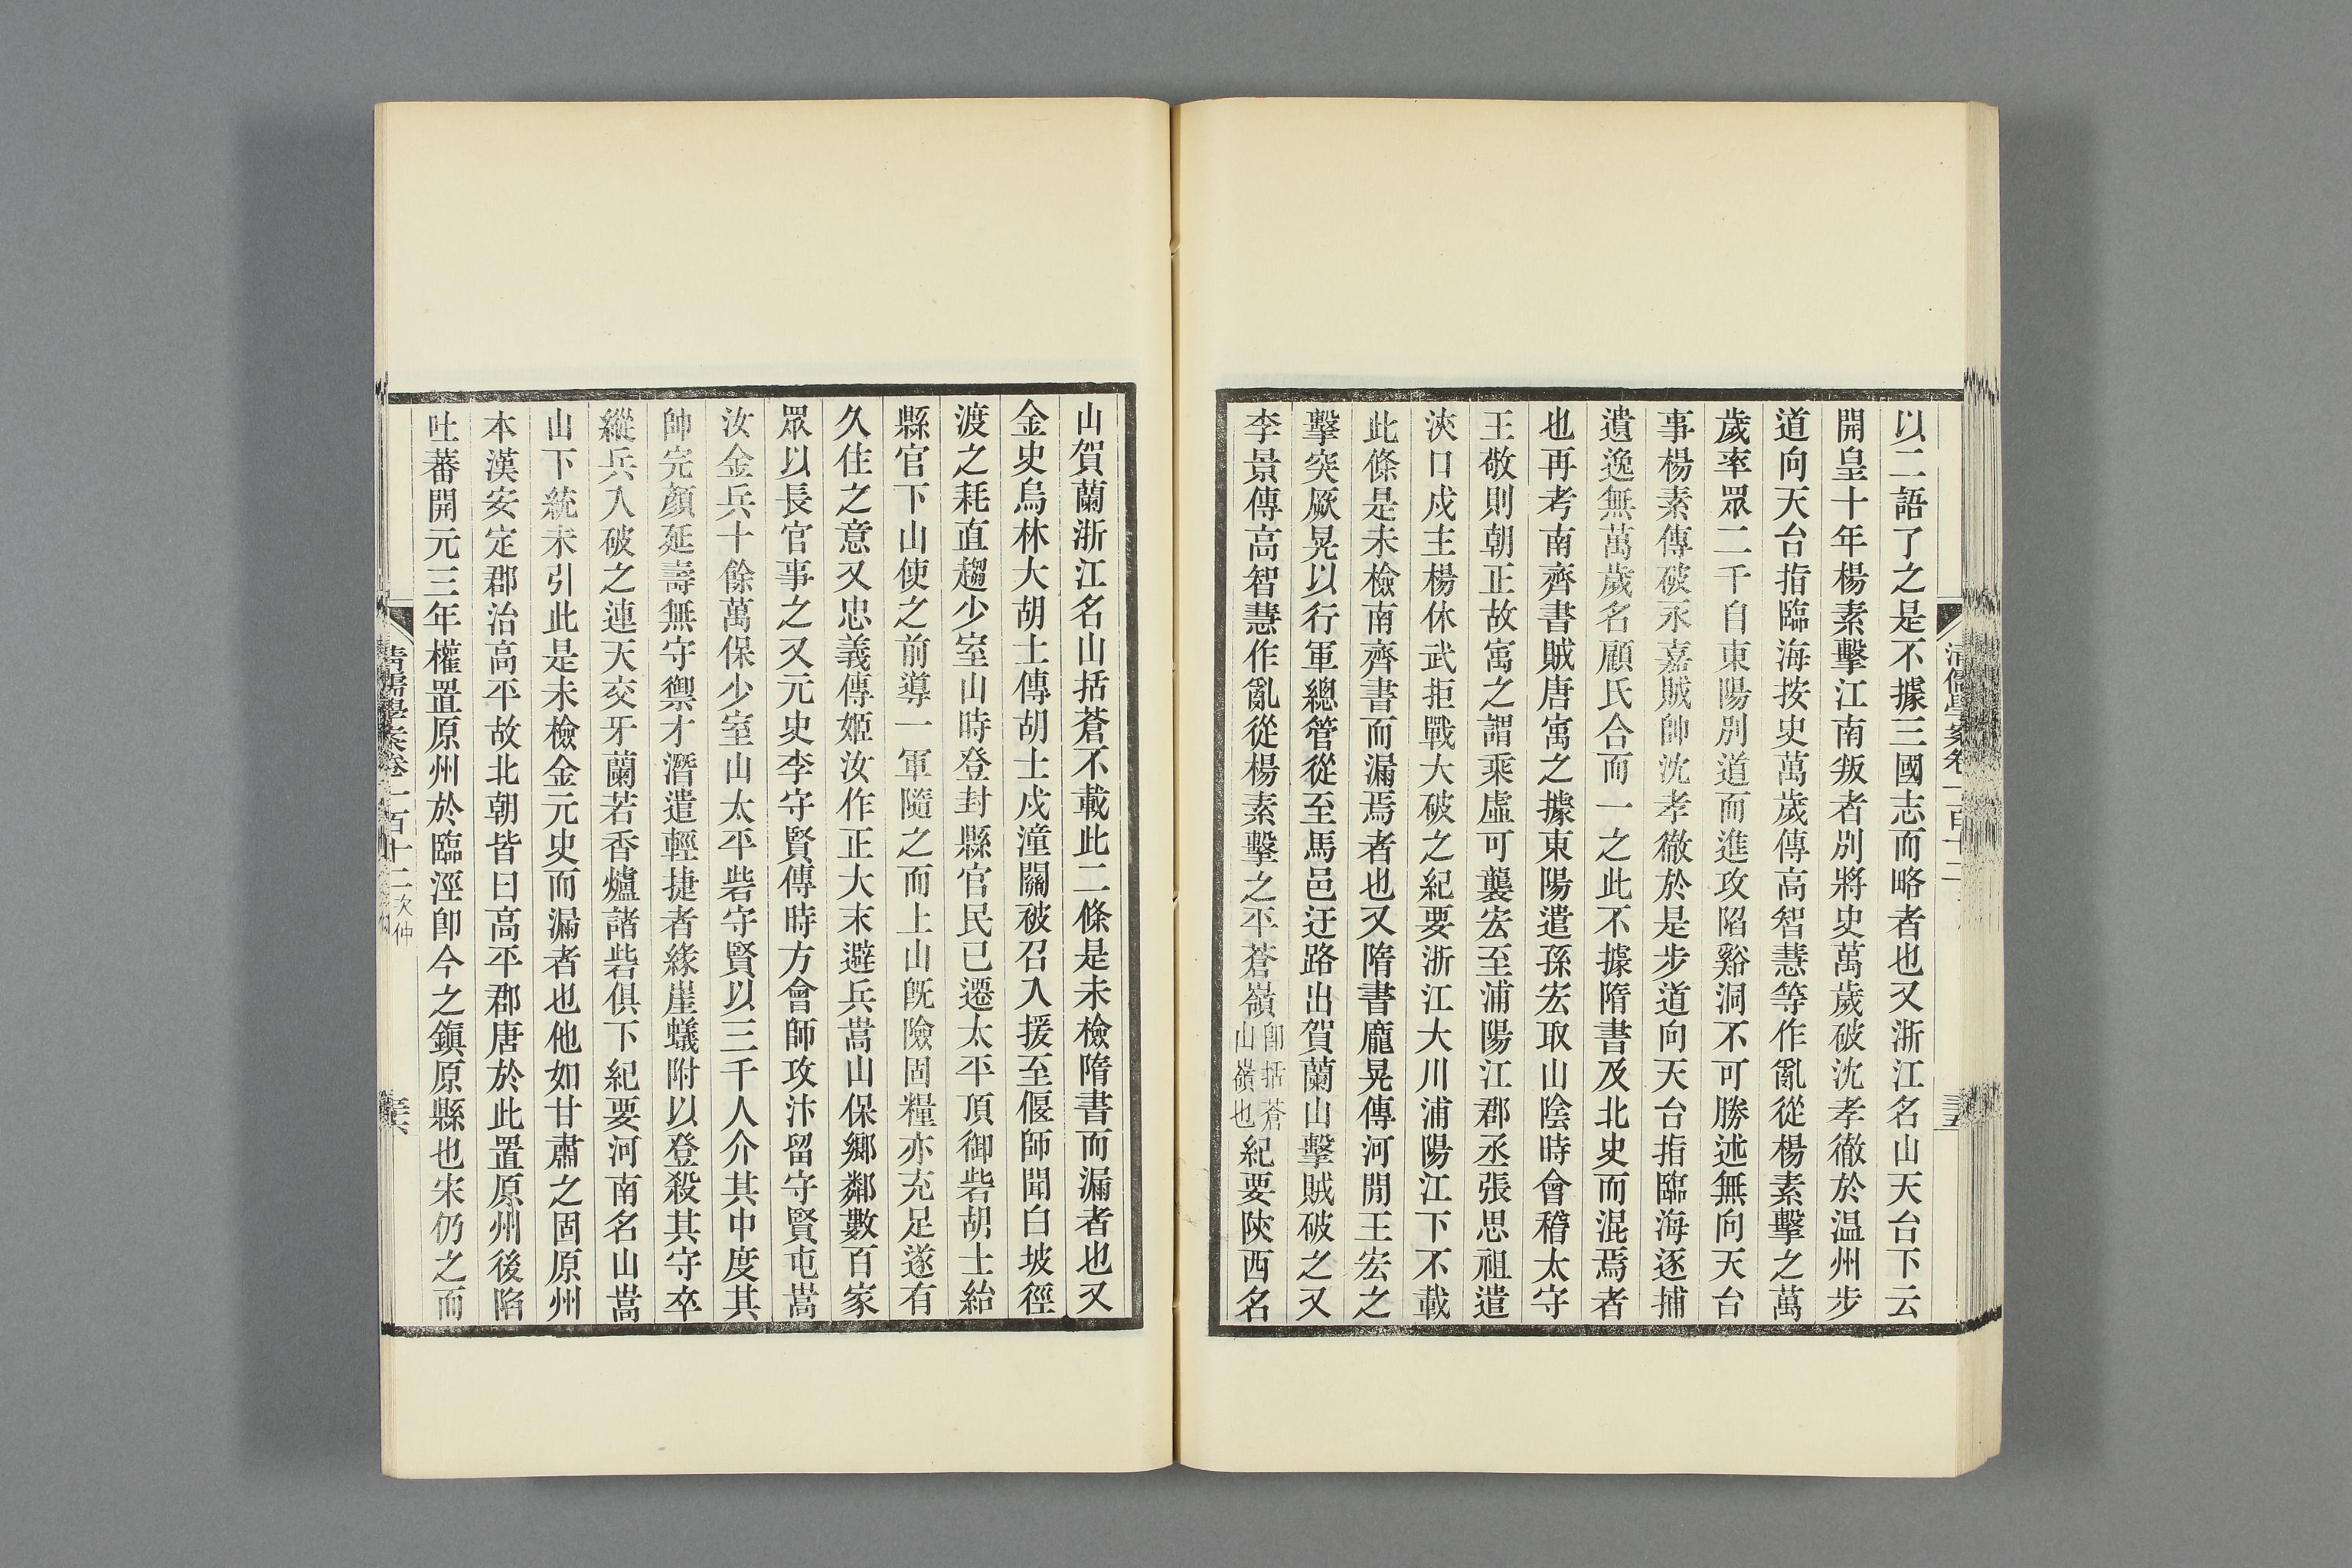 以二語了之是不據三國志而略者也又浙江名山天台下云
開皇十年楊素擊江南叛者別將史萬歲破沈孝徹於温州步
道向天台指臨海按史萬歲傳高智慧等作亂從楊素擊之萬
歲率眾二千自東陽別道而進攻陷谿洞不可勝述無向天台
事楊素傳破永嘉賊帥沈孝徹於是步道向天台指臨海逐捕
遺逸無萬歲名顧氏合而一之此不據隋書及北史而混焉者
也再考南齊書賊唐寓之據東陽遣孫宏取山陰時會稽太守
王敬則朝正故寓之謂乘虛可襲宏至浦陽江郡丞張思祖遣
浹口戍主楊休武拒戰大破之紀要浙江大川浦陽江下不載
此條是未檢南齊書而漏焉者也又隋書龐晃傳河閒王宏之
擊突厥晃以行軍總管從至馬邑迂路出賀蘭山擊賊破之又
李景傳高智慧作亂從楊素擊之平蒼嶺卽括蒼山嶺也紀要陝西名
山賀蘭浙江名山括蒼不載此二條是未檢隋書而漏者也又
金史烏林大胡土傳胡土戍潼關被召入援至偃師聞白坡徑
渡之耗直趨少室山時登封縣官民已遷太平頂御砦胡土紿
縣官下山使之前導一軍隨之而上山旣險固糧亦充足遂有
久住之意又忠義傳姬汝作正大末避兵嵩山保鄉鄰數百家
眾以長官事之又元史李守賢傳時方會師攻汴留守賢屯嵩
汝金兵十餘萬保少室山太平砦守賢以三千人介其中度其
帥完顏延壽無守禦才潛遣輕捷者緣崖蟻附以登殺其守卒
縱兵入破之連天交牙蘭若香爐諸砦俱下紀要河南名山嵩
山下統未引此是未檢金元史而漏者也他如甘肅之固原州
本漢安定郡治高平故北朝皆曰高平郡唐於此置原州後陷
吐蕃開元三年權置原州於臨涇卽今之鎭原縣也宋仍之而
清儒學案卷一百十二次仲